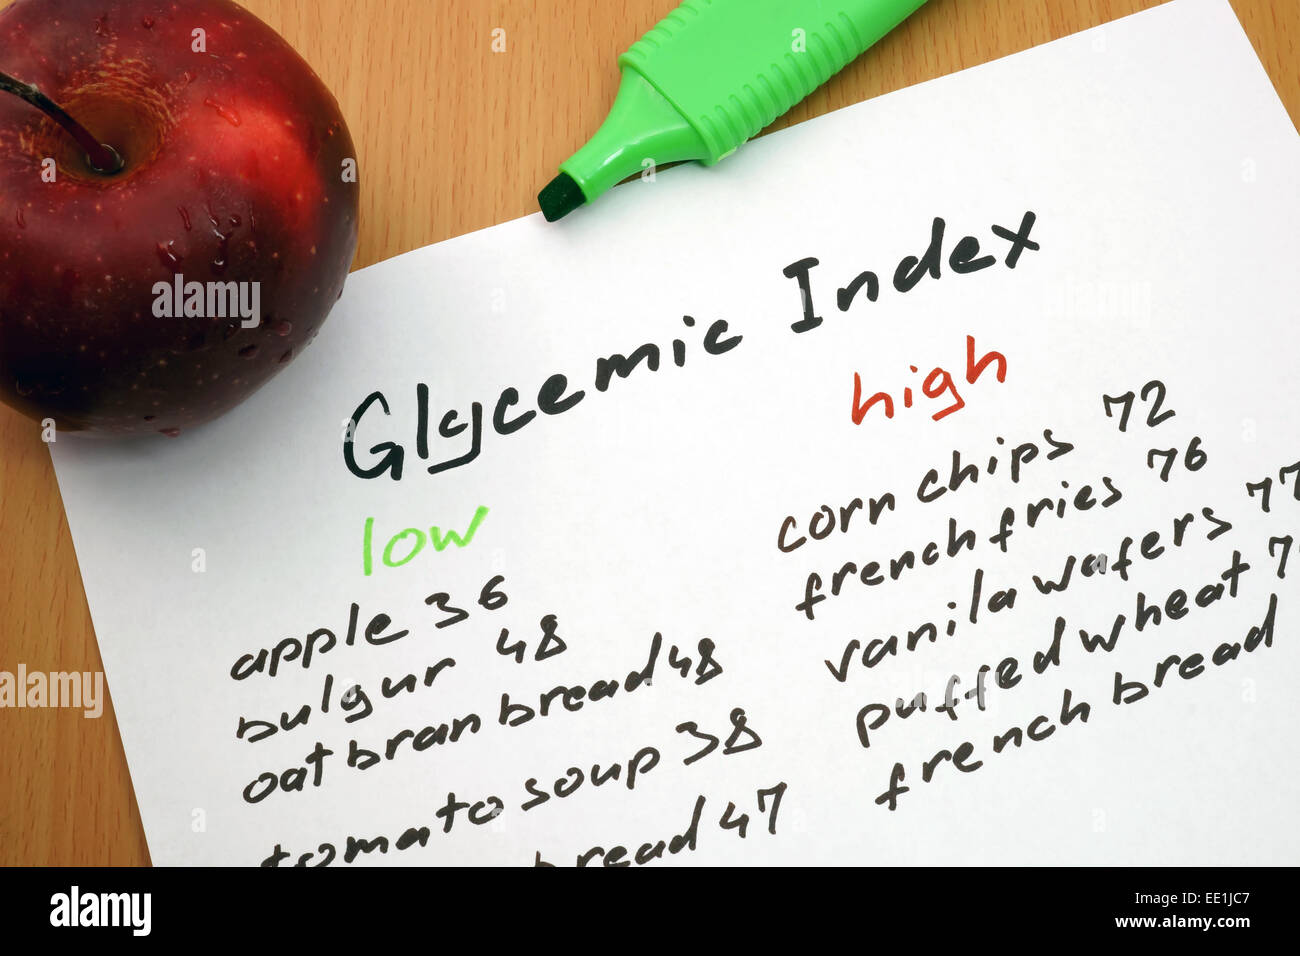 Glycemic Index
low
apple 36
bulgur 48
oat bran bread 48
tomato soup 38
bread 47
high
corn chips 72
french fries 76
vanila wafers 77
puffed wheat
french bread
alamy
Image ID: EE1JC7
www.alamy.com